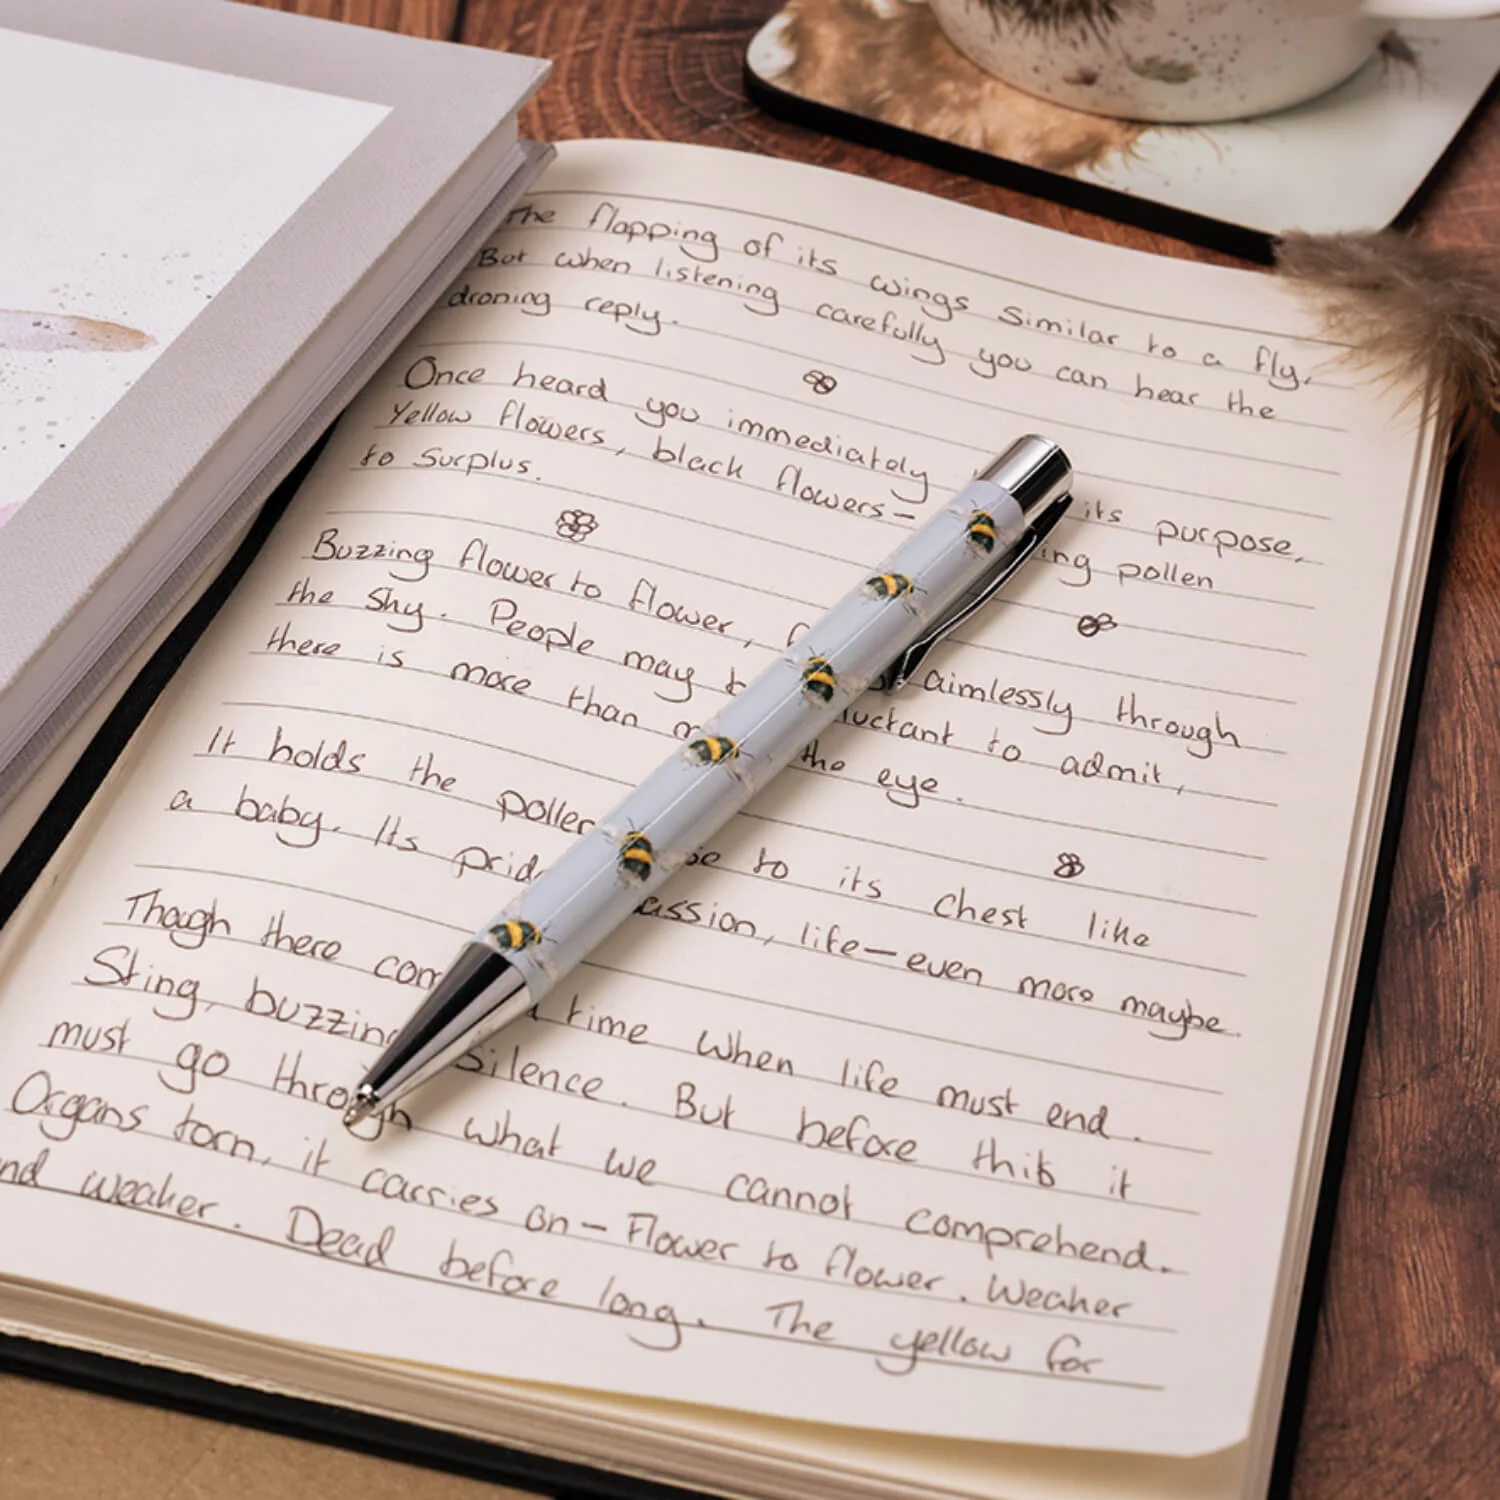 The flapping of its wings similar to a fly,
But when listening carefully you can hear the
droning reply.
Once heard you immediately its purpose,
Yellow flowers, black flowers- ing pollen
to surplus.
Buzzing flower to flower, aimlessly through
the sky. People may luctant to admit,
there is more than the eye.
It holds the pollen to its chest like
a baby. Its prid assion, life-even more maybe.
Though there com a time when life must end.
Sting, buzzing silence. But before this it
must go through what we cannot comprehend.
Organs torn, it carries on- Flower to flower. Weaker
nd weaker. Dead before long. The yellow for